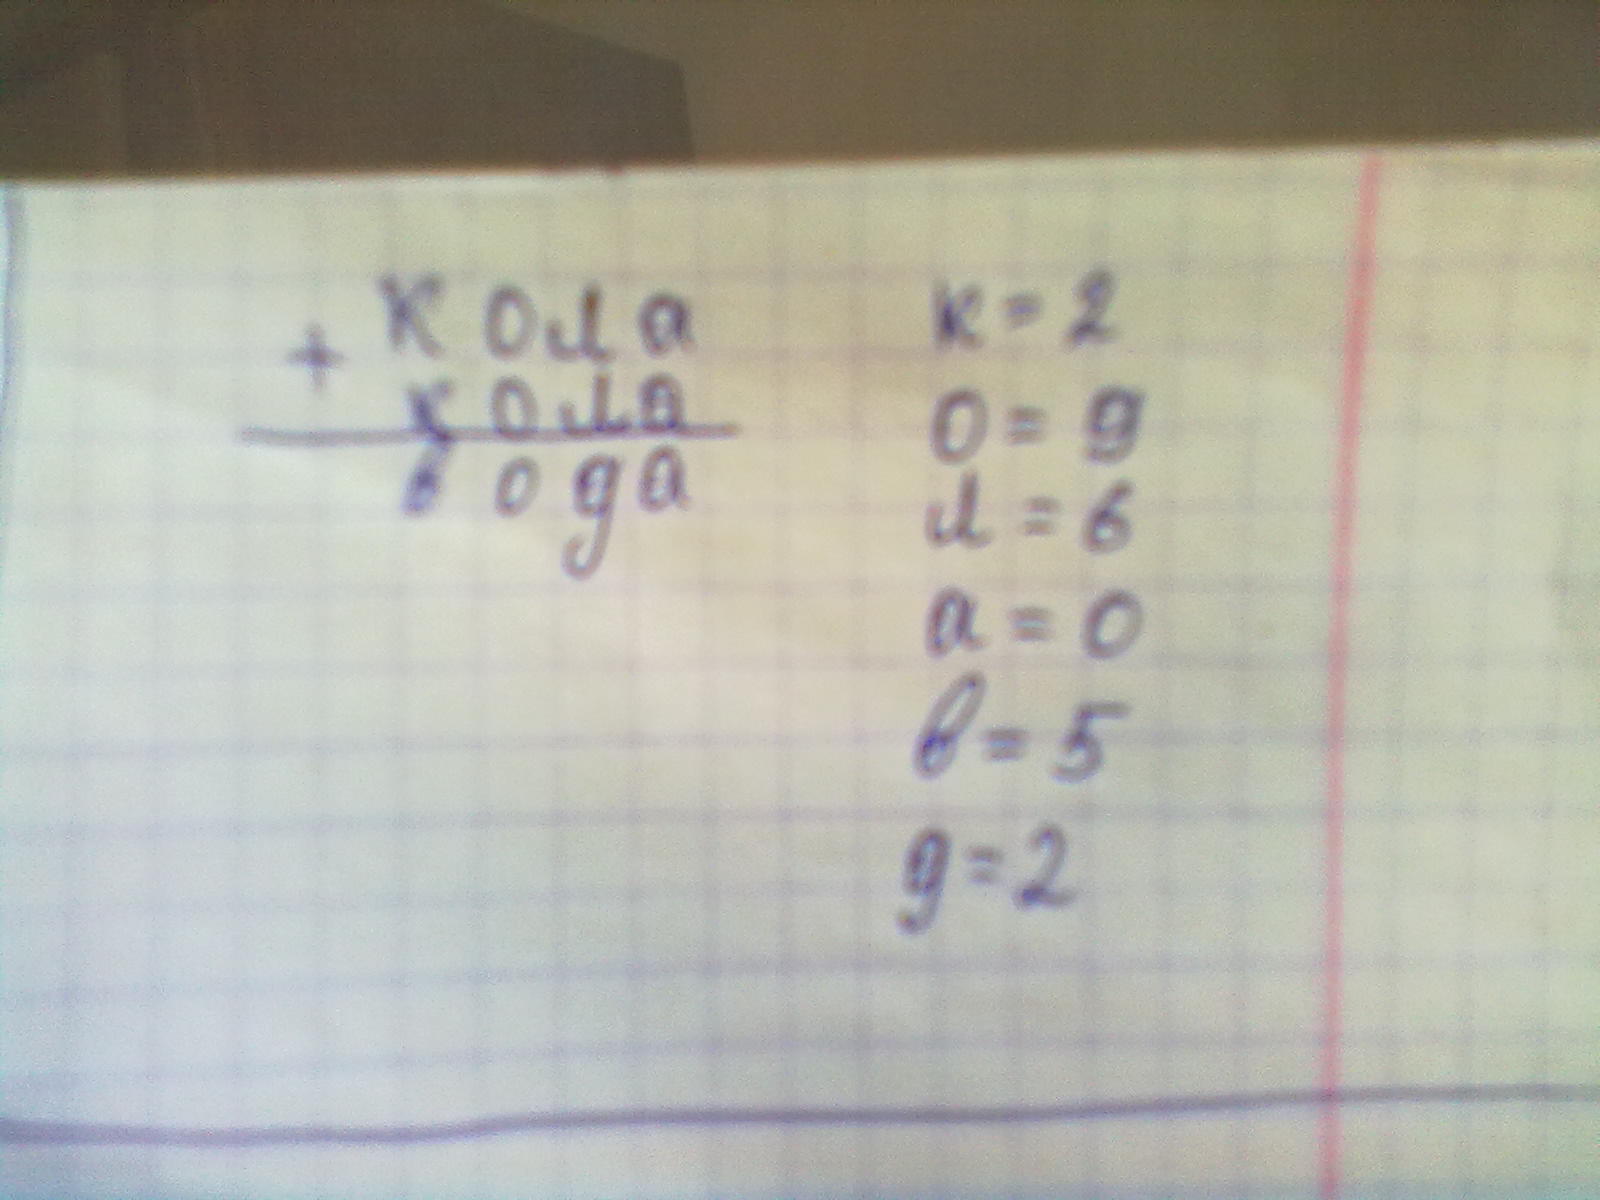 кола
+
кола
вода
к = 2
о = 9
л = 6
а = 0
в = 5
д = 2